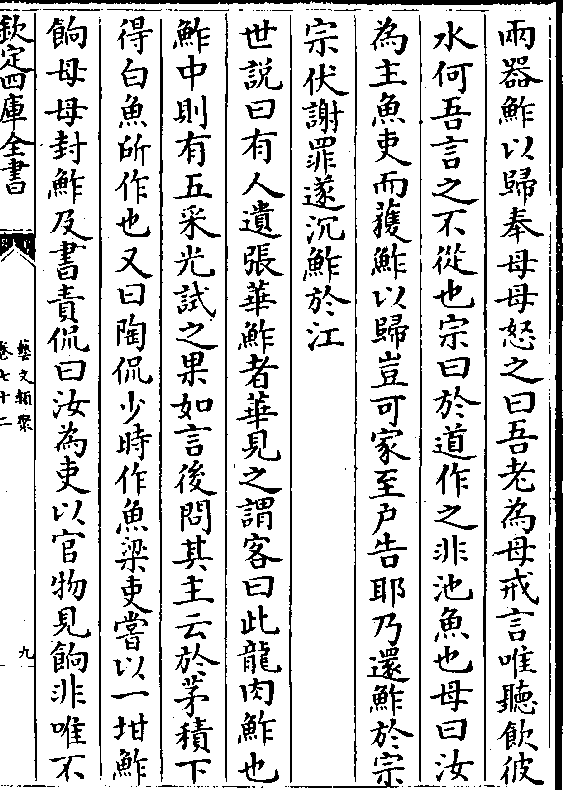 兩器鮓以歸奉母母怒之曰吾老為母戒言唯聽飲彼
水何吾言之不從也宗曰於道作之非池魚也母曰汝
為主魚吏而獲鮓以歸豈可家至戶告耶乃還鮓於宗
宗伏謝罪遂沉鮓於江
世說曰有人遺張華鮓者華見之謂客曰此龍肉鮓也
鮓中則有五采光試之果如言後問其主云於茅積下
得白魚所作也又曰陶侃少時作魚梁吏嘗以一坩鮓
餉母母封鮓及書責侃曰汝為吏以官物見餉非唯不
欽定四庫全書
藝文類聚
卷七十二
九